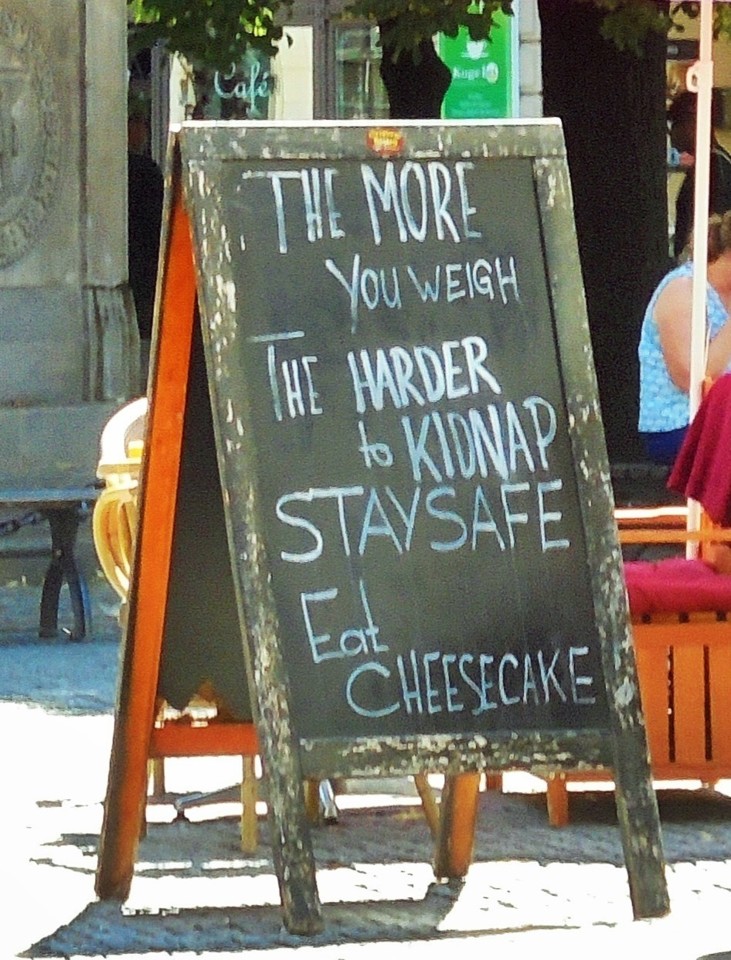 Café
Kugel
THE MORE
YOU WEIGH
THE HARDER
to KIDNAP
STAY SAFE
Eat
CHEESECAKE